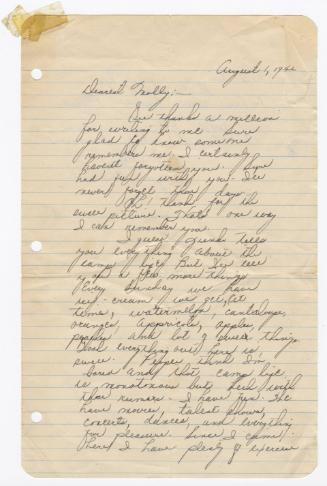 August 1, 1942
Dearest Molly:-
thanks a million
for writing to me. Sure
glad to know someone
remembers me. I certainly
haven't forgotten you. I've
had fun with you. I'll
never forget those days.
Oh! thanks for the
sweet picture. That's one way
I can remember you.
I guess tells
you everything about the
camp life. But I'll see
if a few more things.
Every Sunday we have
ice-cream we get, at
times, watermelon, cantaloupe,
oranges, appricots, apples,
and lot of sweet things.
everything out here is
swell. think I'm
bored and that, camp life
is monotonous but heck with
that rumor. I have fun. We
have movies, talent shows,
concerts, dances, and everything
for pleasure. Since I came
here I have plenty of exercise